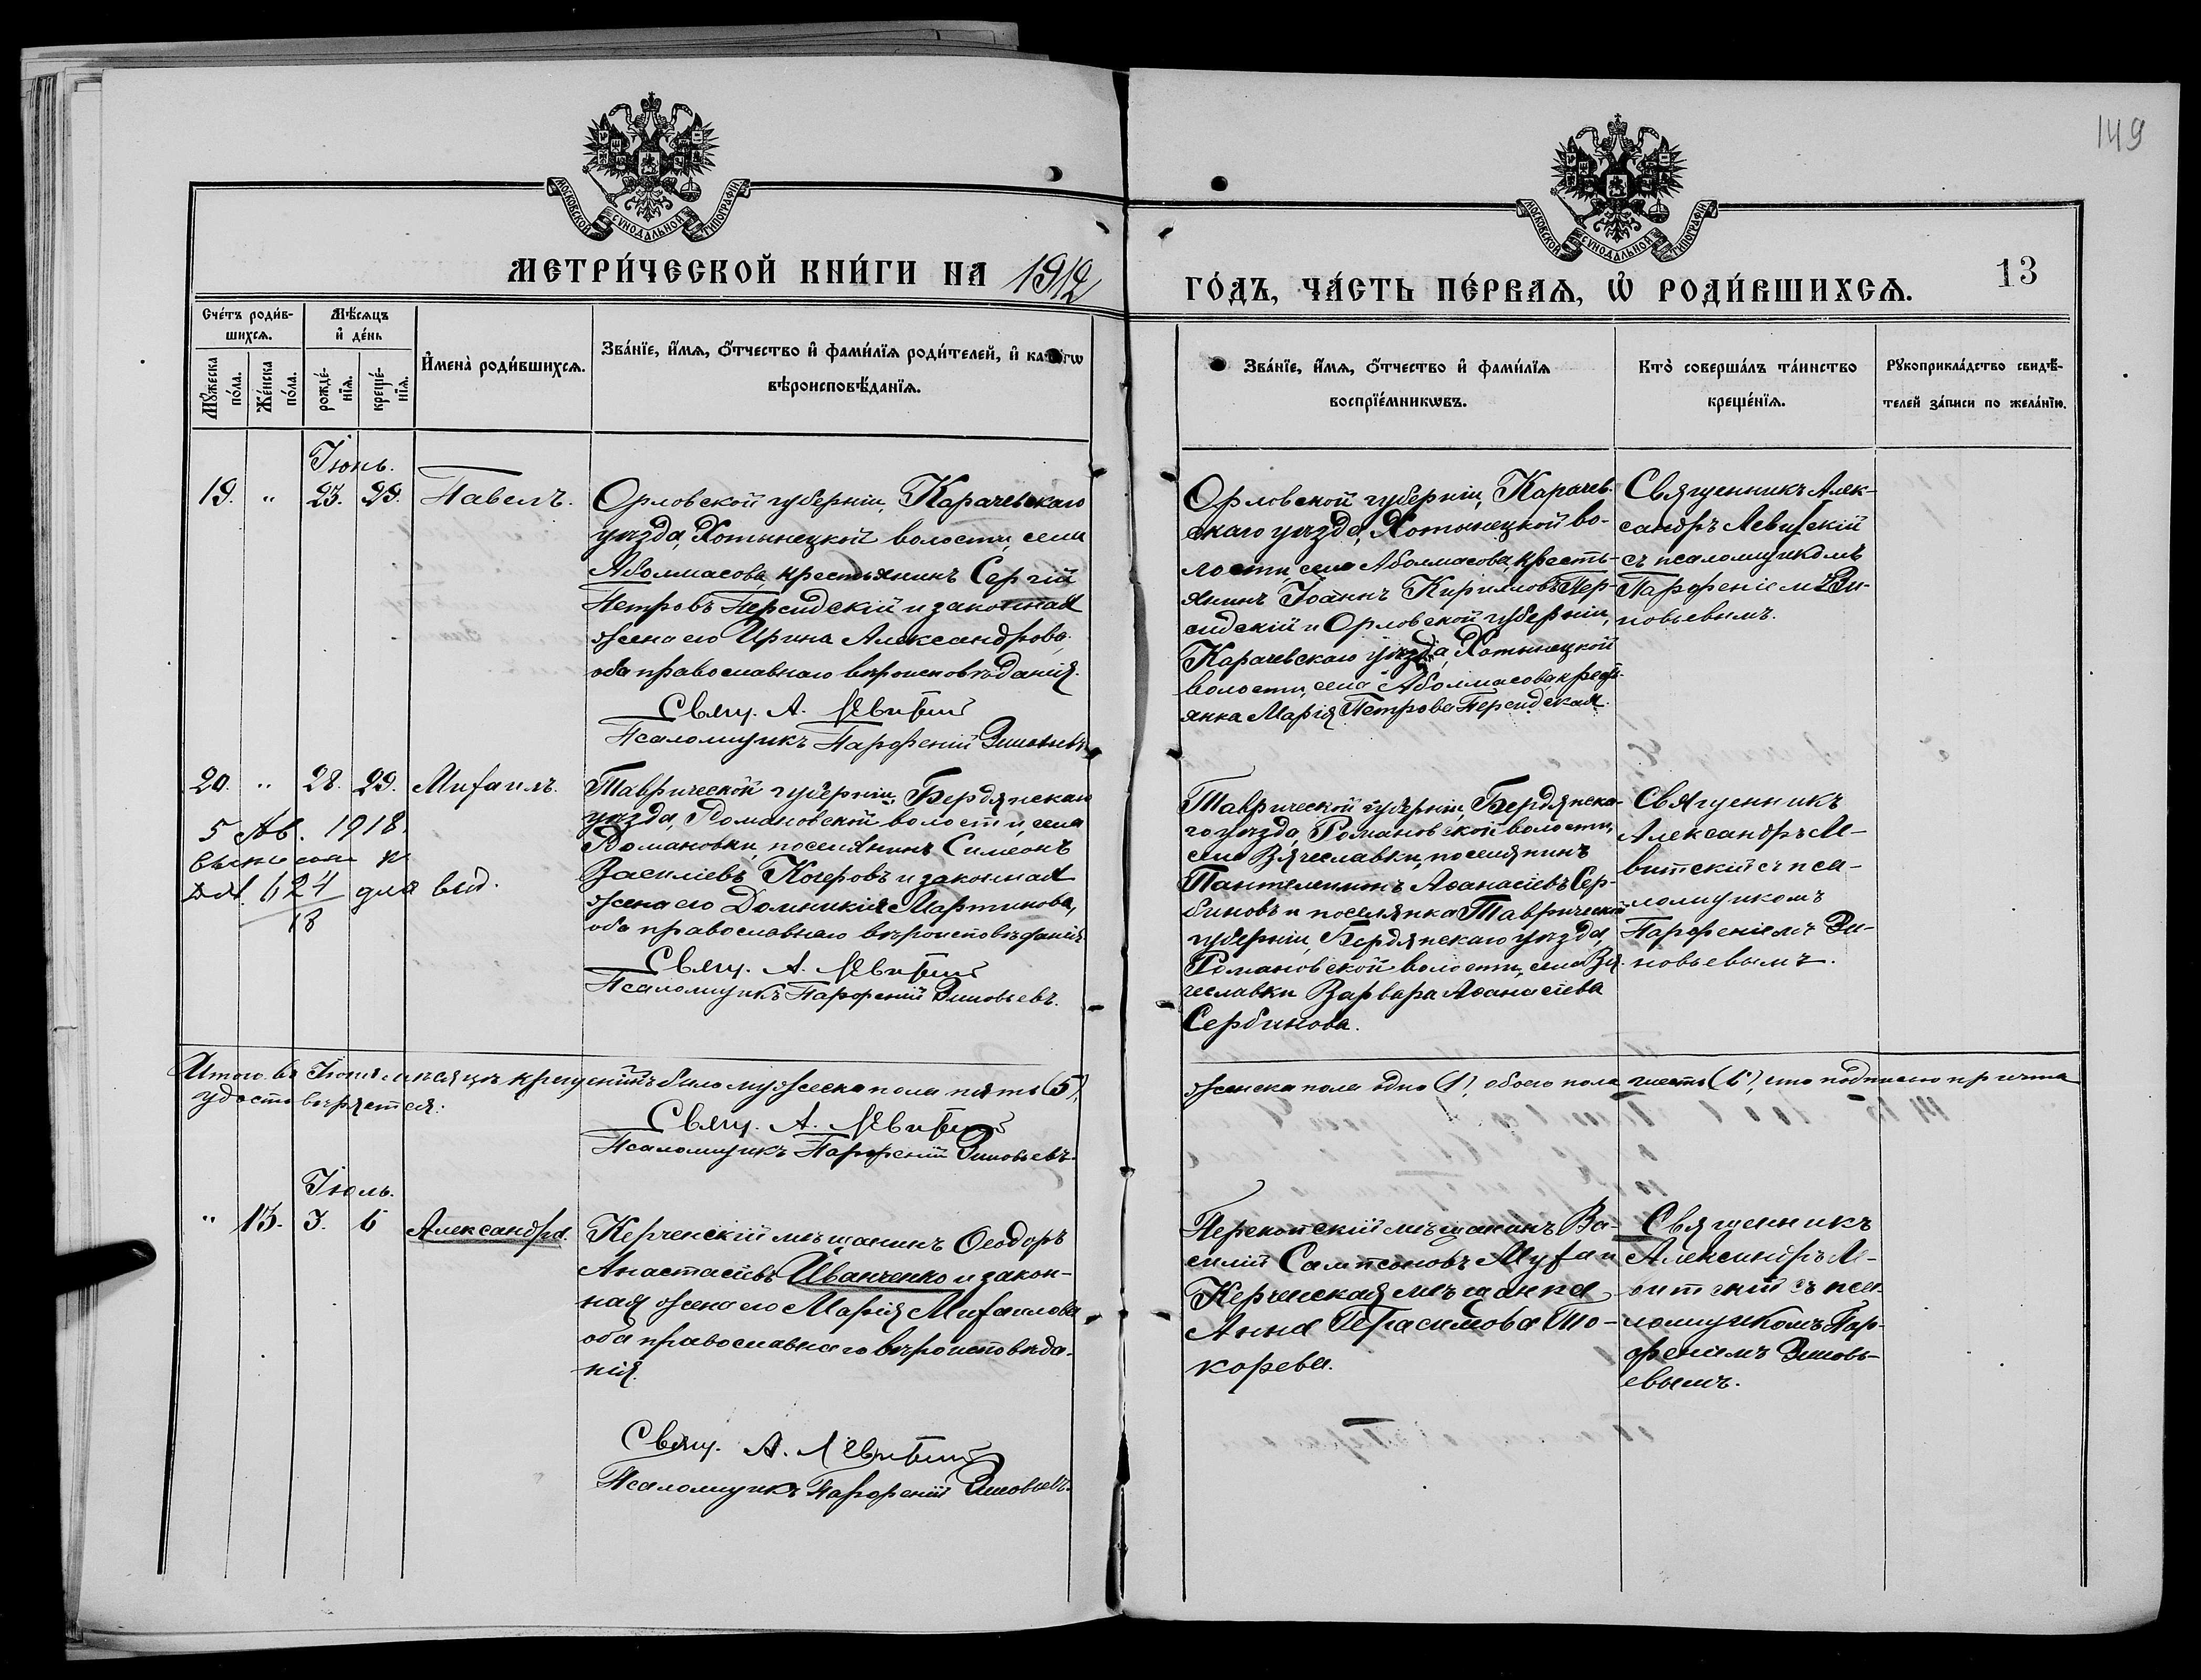 149
МОСКОВСКОЙ СѴНОДАЛЬНОЙ ТИПОГРАФІИ
МОСКОВСКОЙ СѴНОДАЛЬНОЙ ТИПОГРАФІИ
МЕТРИ́ЧЕСКОЙ КНИ́ГИ НА 1912
ГО́ДЪ, ЧА́СТЬ ПЕ́РВАЯ, Ѡ РОДИ́ВШИХСЯ.
13
Сче́тъ роди́в-
шихся.
Мѣ́сяцъ
и де́нь
Му́жеска
по́ла.
Же́нска
по́ла.
рожде́-
нія.
креще́-
нія.
Имена̀ роди́вшихся.
Зва́ніе, и́мя, о́тчество и фами́лія роди́телей, и
вѣроисповѣ́данія.
Зва́ніе, и́мя, о́тчество и фами́лія
воспріе́мникѡвъ.
Кто̀ соверша́лъ та́инство
креще́нія.
Рукоприкла́дство свидѣ́-
телей за́писи по жела́нію.
Іюнь.
19. " 23. 29. Павелъ.
Орловской губерніи, Карачевскаго
уѣзда, Хотынецкой волости, села
Аболмасова крестьянинъ Сергій
Петровъ Персидскій и законная
жена его Ирина Александрова,
оба православнаго вѣроисповѣданія.
Свящ. А. Левитскій
Псаломщикъ Парѳеній Зиновьевъ
Орловской губерніи, Карачев-
скаго уѣзда, Хотынецкой во-
лости, села Аболмасова, кресть-
янинъ Іоаннъ Кирилловъ Пер-
сидскій и Орловской губерніи,
Карачевскаго уѣзда, Хотынецкой
волости, села Аболмасова крест-
янка Марія Петрова Персидская.
Священникъ Алек-
сандръ Левитскій
съ псаломщикомъ
Парѳеніемъ Зи-
новьевымъ.
20. " 28. 29. Михаилъ.
5 Ав. 1918.
624 для выд.
18
Таврической губерніи, Бердянскаго
уѣзда, Романовской волости, села
Романовки, поселянинъ Симеонъ
Василіевъ Кочеровъ и законная
жена его Домникія Мартинова,
оба православнаго вѣроисповѣданія
Свящ. А. Левитскій
Псаломщикъ Парѳеній Зиновьевъ.
Таврической губерніи, Бердянска-
го уѣзда, Романовской волости,
села Вячеславки, поселянинъ
Пантелеимонъ Аѳанасіевъ Сер-
биновъ и поселянка Таврической
губерніи, Бердянскаго уѣзда,
Романовской волости, села Вя-
чеславки Варвара Аѳанасіева
Сербинова.
Священникъ
Александръ Ле-
витскій съ пса-
ломщикомъ
Парѳеніемъ Зи-
новьевымъ.
Итого въ Іюнѣ мѣсяцѣ крещеній было мужеска пола пять (5),
женска пола одно (1), обоего пола шесть (6), что подписью причта
удостовѣряется:
Свящ. А. Левитскій
Псаломщикъ Парѳеній Зиновьевъ
Іюль.
" 13. 3. 6 Александра.
Керченскій мѣщанинъ Ѳеодоръ
Анастасіевъ Иванченко и закон-
ная жена его Марія Михаилова
оба православнаго вѣроисповѣда-
нія.
Свящ. А. Левитскій
Псаломщикъ Парѳеній Зиновьевъ.
Перекопскій мѣщанинъ Ва-
силій Сампсоновъ Муха и
Керченская мѣщанка
Анна Герасимова То-
корева.
Священникъ
Александръ Ле-
витскій съ пса-
ломщикомъ Пар-
ѳеніемъ Зиновь-
евымъ.